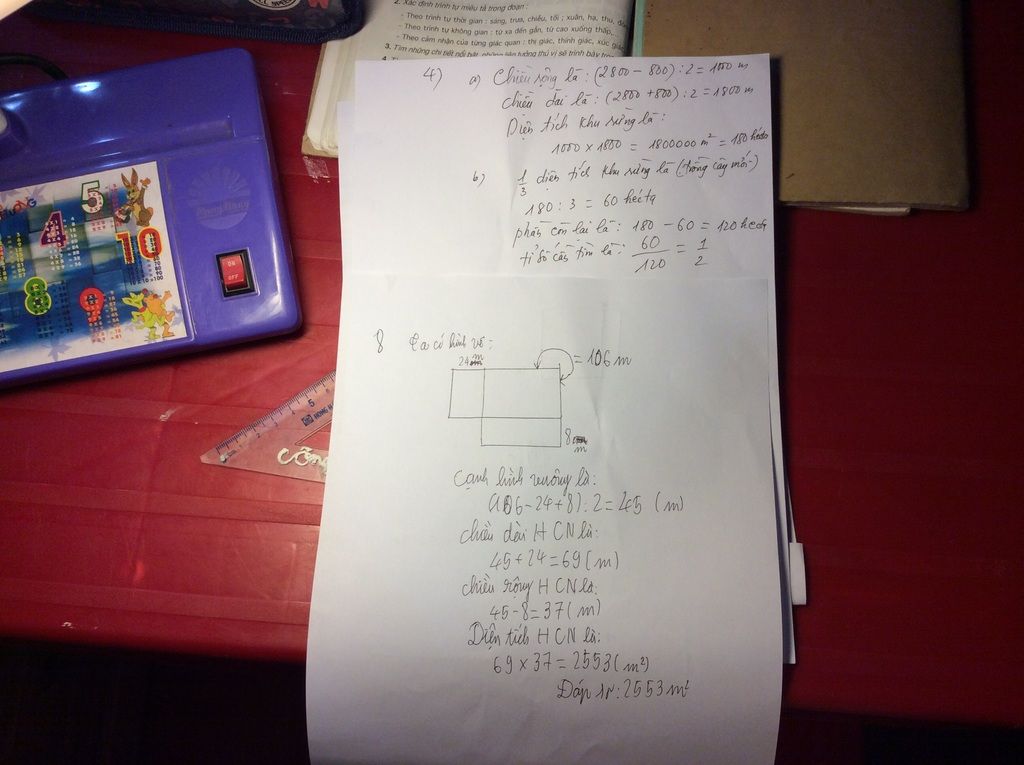 2. Xác định trình tự miêu tả trong đoạn :
- Theo trình tự thời gian : sáng, trưa, chiều, tối ; xuân, hạ, thu,
- Theo trình tự không gian : từ xa đến gần, từ cao xuống thấp,...
- Theo cảm nhận của từng giác quan : thị giác, thính giác, xúc
3. Tìm những chi tiết nổi bật, những liên tưởng thú vị sẽ trình bày
4) a) Chiều rộng là : (2800 - 800) : 2 = 1000 m
Chiều dài là : (2800 + 800) : 2 = 1800 m
Diện tích khu rừng là :
1000 x 1800 = 1800000 m² = 180 héc
b) 1/3 diện tích khu rừng là (trồng cây mới)
180 : 3 = 60 hécta
phần còn lại là : 180 - 60 = 120 hécta
tỉ số cần tìm là : 60/120 = 1/2
8 Ta có hình vẽ :
24 m
= 106 m
8 m
Cạnh hình vuông là :
(106 - 24 + 8) : 2 = 45 (m)
chiều dài HCN là :
45 + 24 = 69 (m)
chiều rộng HCN là :
45 - 8 = 37 (m)
Diện tích HCN là :
69 x 37 = 2553 (m²)
Đáp số : 2553 m²
ON
OFF
5
4
10
8
9
5